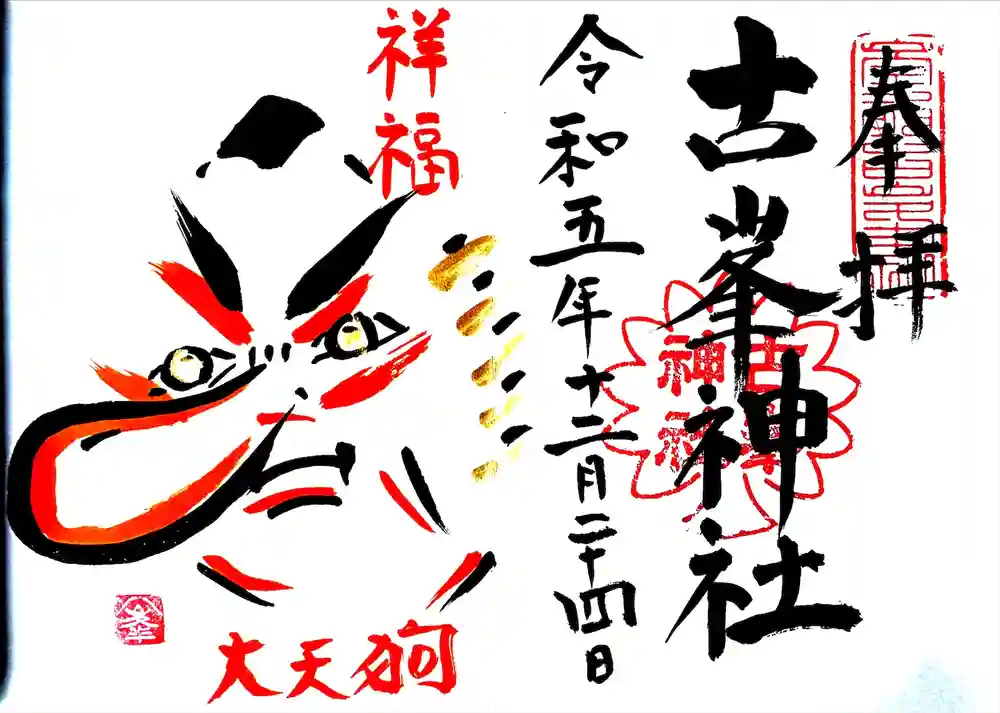 奉拝
古峯神社
令和五年十二月二十四日
祥福
大天狗
古峯
神社